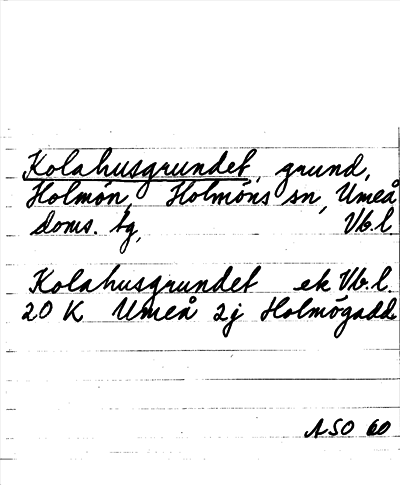 Kolahusgrundet, grund,
Holmön, Holmöns sn, Umeå
doms. tg, Vb.l
Kolahusgrundet ek Vb.l.
20 K Umeå 2j Holmögadd
ASO 60